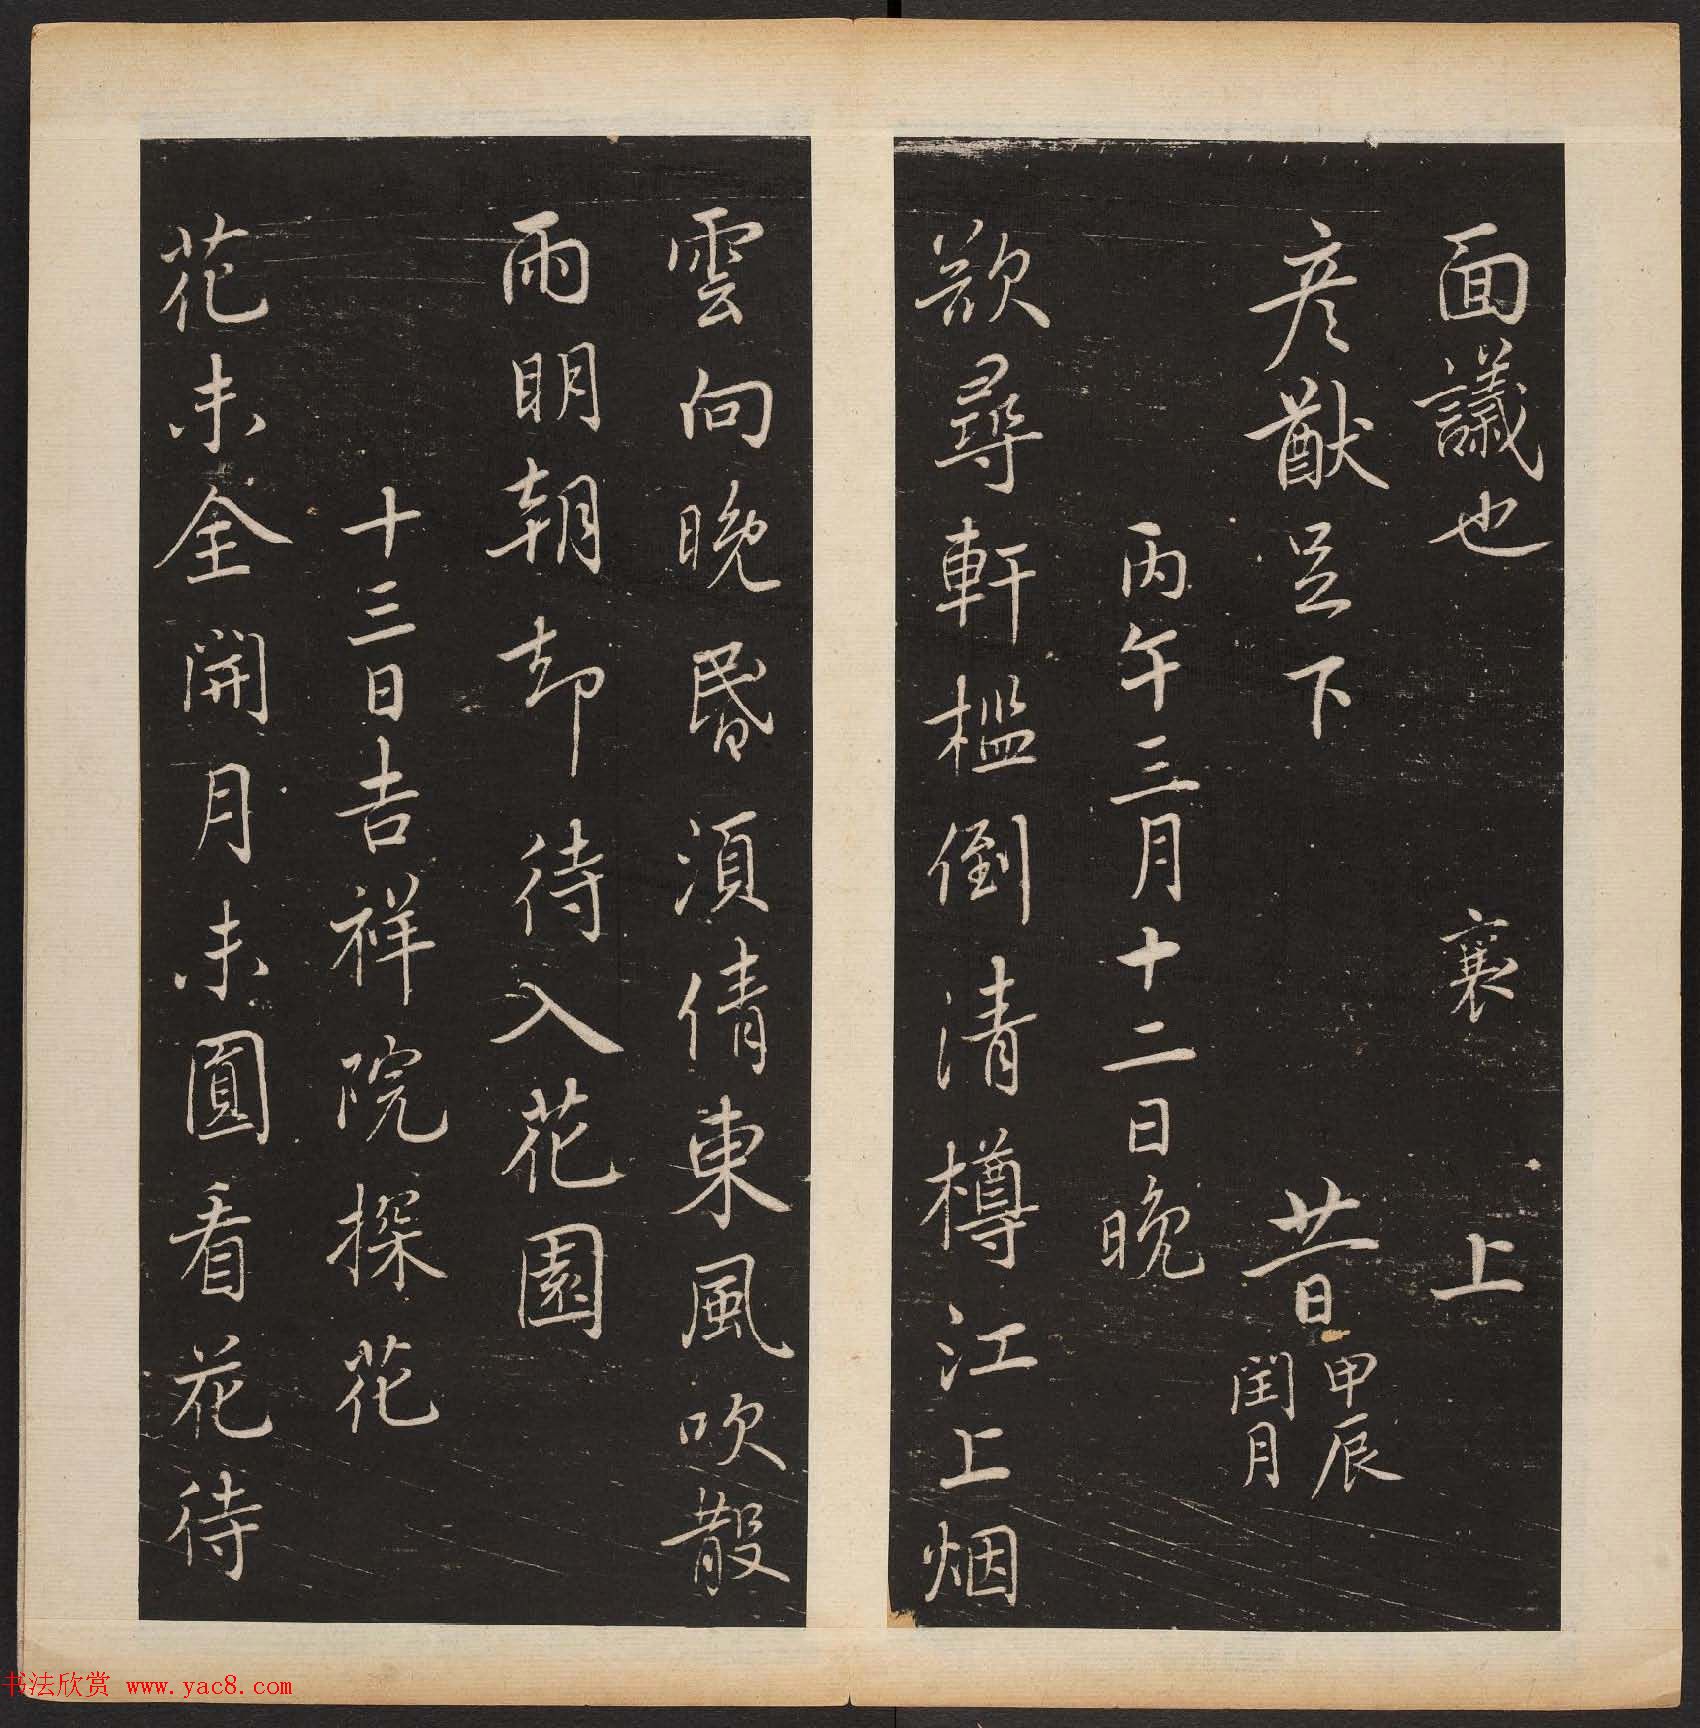 面議也 襄 上
彦猷足下 廿一日甲辰閏月
丙午三月十二日晚
欲尋軒檻倒清樽江上烟
雲向晚昏須倩東風吹散
雨明朝却待入花園
十三日吉祥院探花
花未全開月未圓看花待
书法欣赏 www.yac8.com